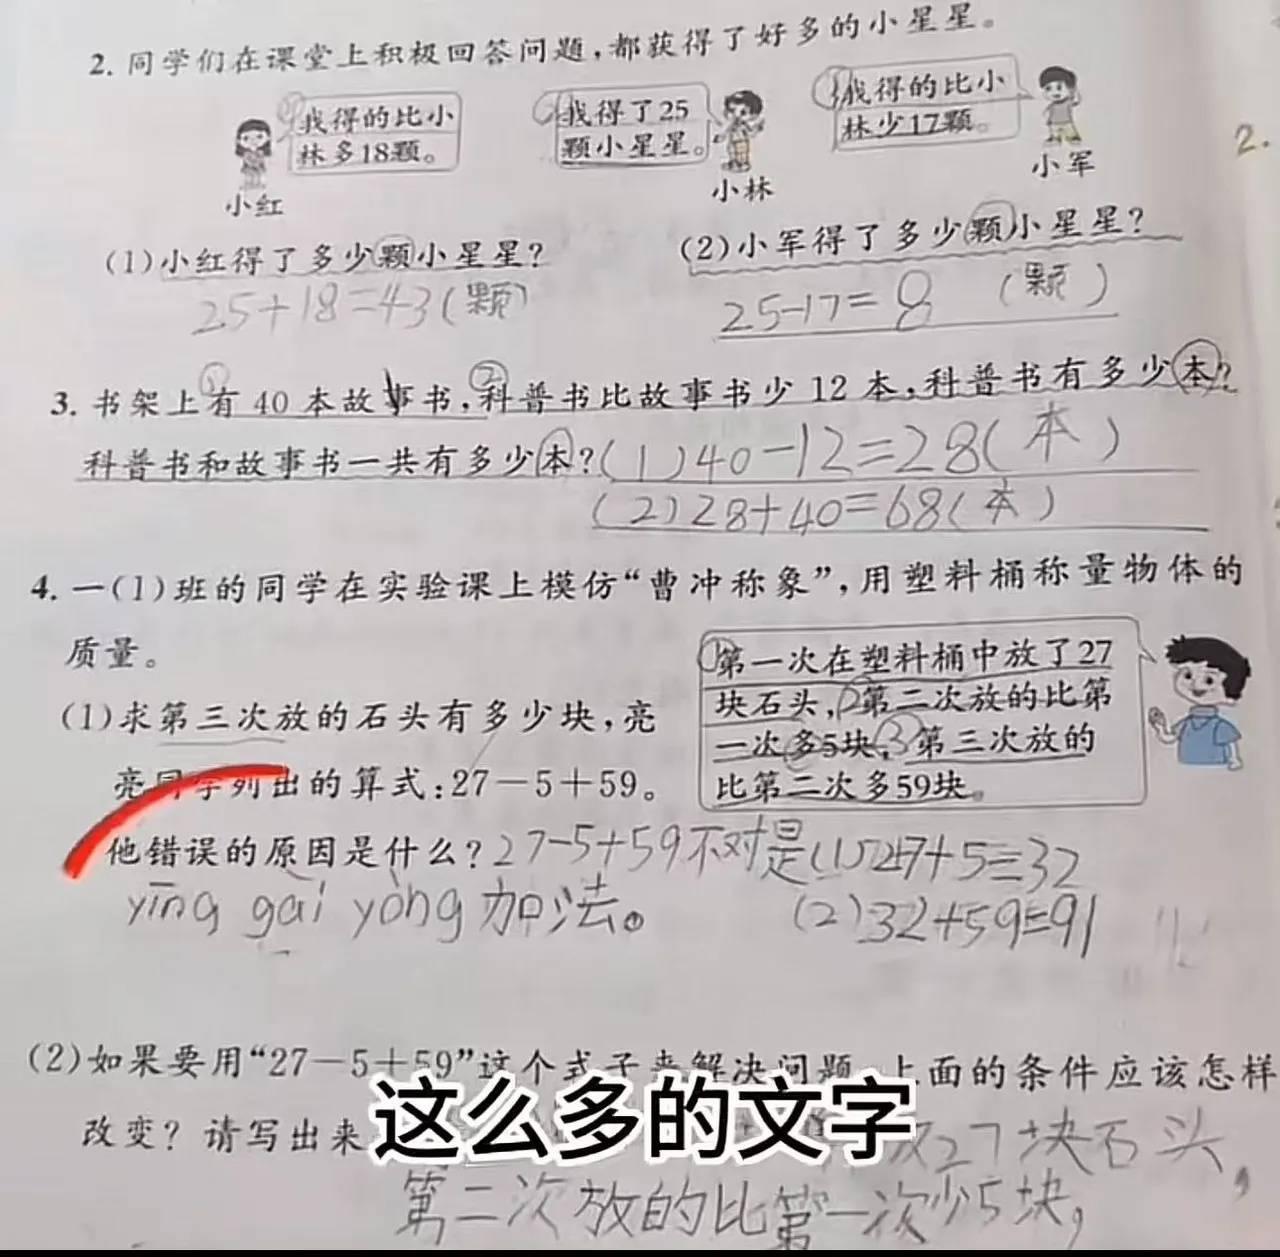 2. 同学们在课堂上积极回答问题，都获得了好多的小星星。
我得的比小
林多18颗。
小红
我得了25
颗小星星。
小林
我得的比小
林少17颗。
小军
2.
(1)小红得了多少颗小星星?
25+18=43(颗)
(2)小军得了多少颗小星星?
25-17=8 (颗)
3. 书架上有40本故事书，科普书比故事书少12本，科普书有多少本?
科普书和故事书一共有多少本?(1)40-12=28(本)
(2)28+40=68(本)
4. 一(1)班的同学在实验课上模仿“曹冲称象”，用塑料桶称量物体的
质量。
①第一次在塑料桶中放了27
块石头，②第二次放的比第
一次多5块，③第三次放的
比第二次多59块。
(1)求第三次放的石头有多少块，亮
亮同学列出的算式:27-5+59。
他错误的原因是什么?27-5+59不对是(1)27+5=32
yīng gāi yòng 加法。 (2)32+59=91
(2)如果要用“27-5+59”这个式子来解决问题，上面的条件应该怎样
改变？请写出来
这么多的文字
次27块石头，
第二次放的比第一次少5块，